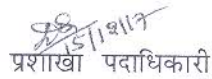 15/12/17
प्रशाखा पदाधिकारी